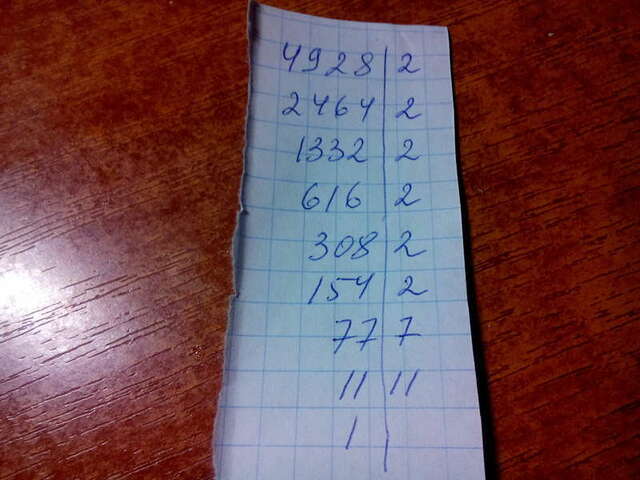 4928 | 2
2464 | 2
1332 | 2
616 | 2
308 | 2
154 | 2
77 | 7
11 | 11
1 |